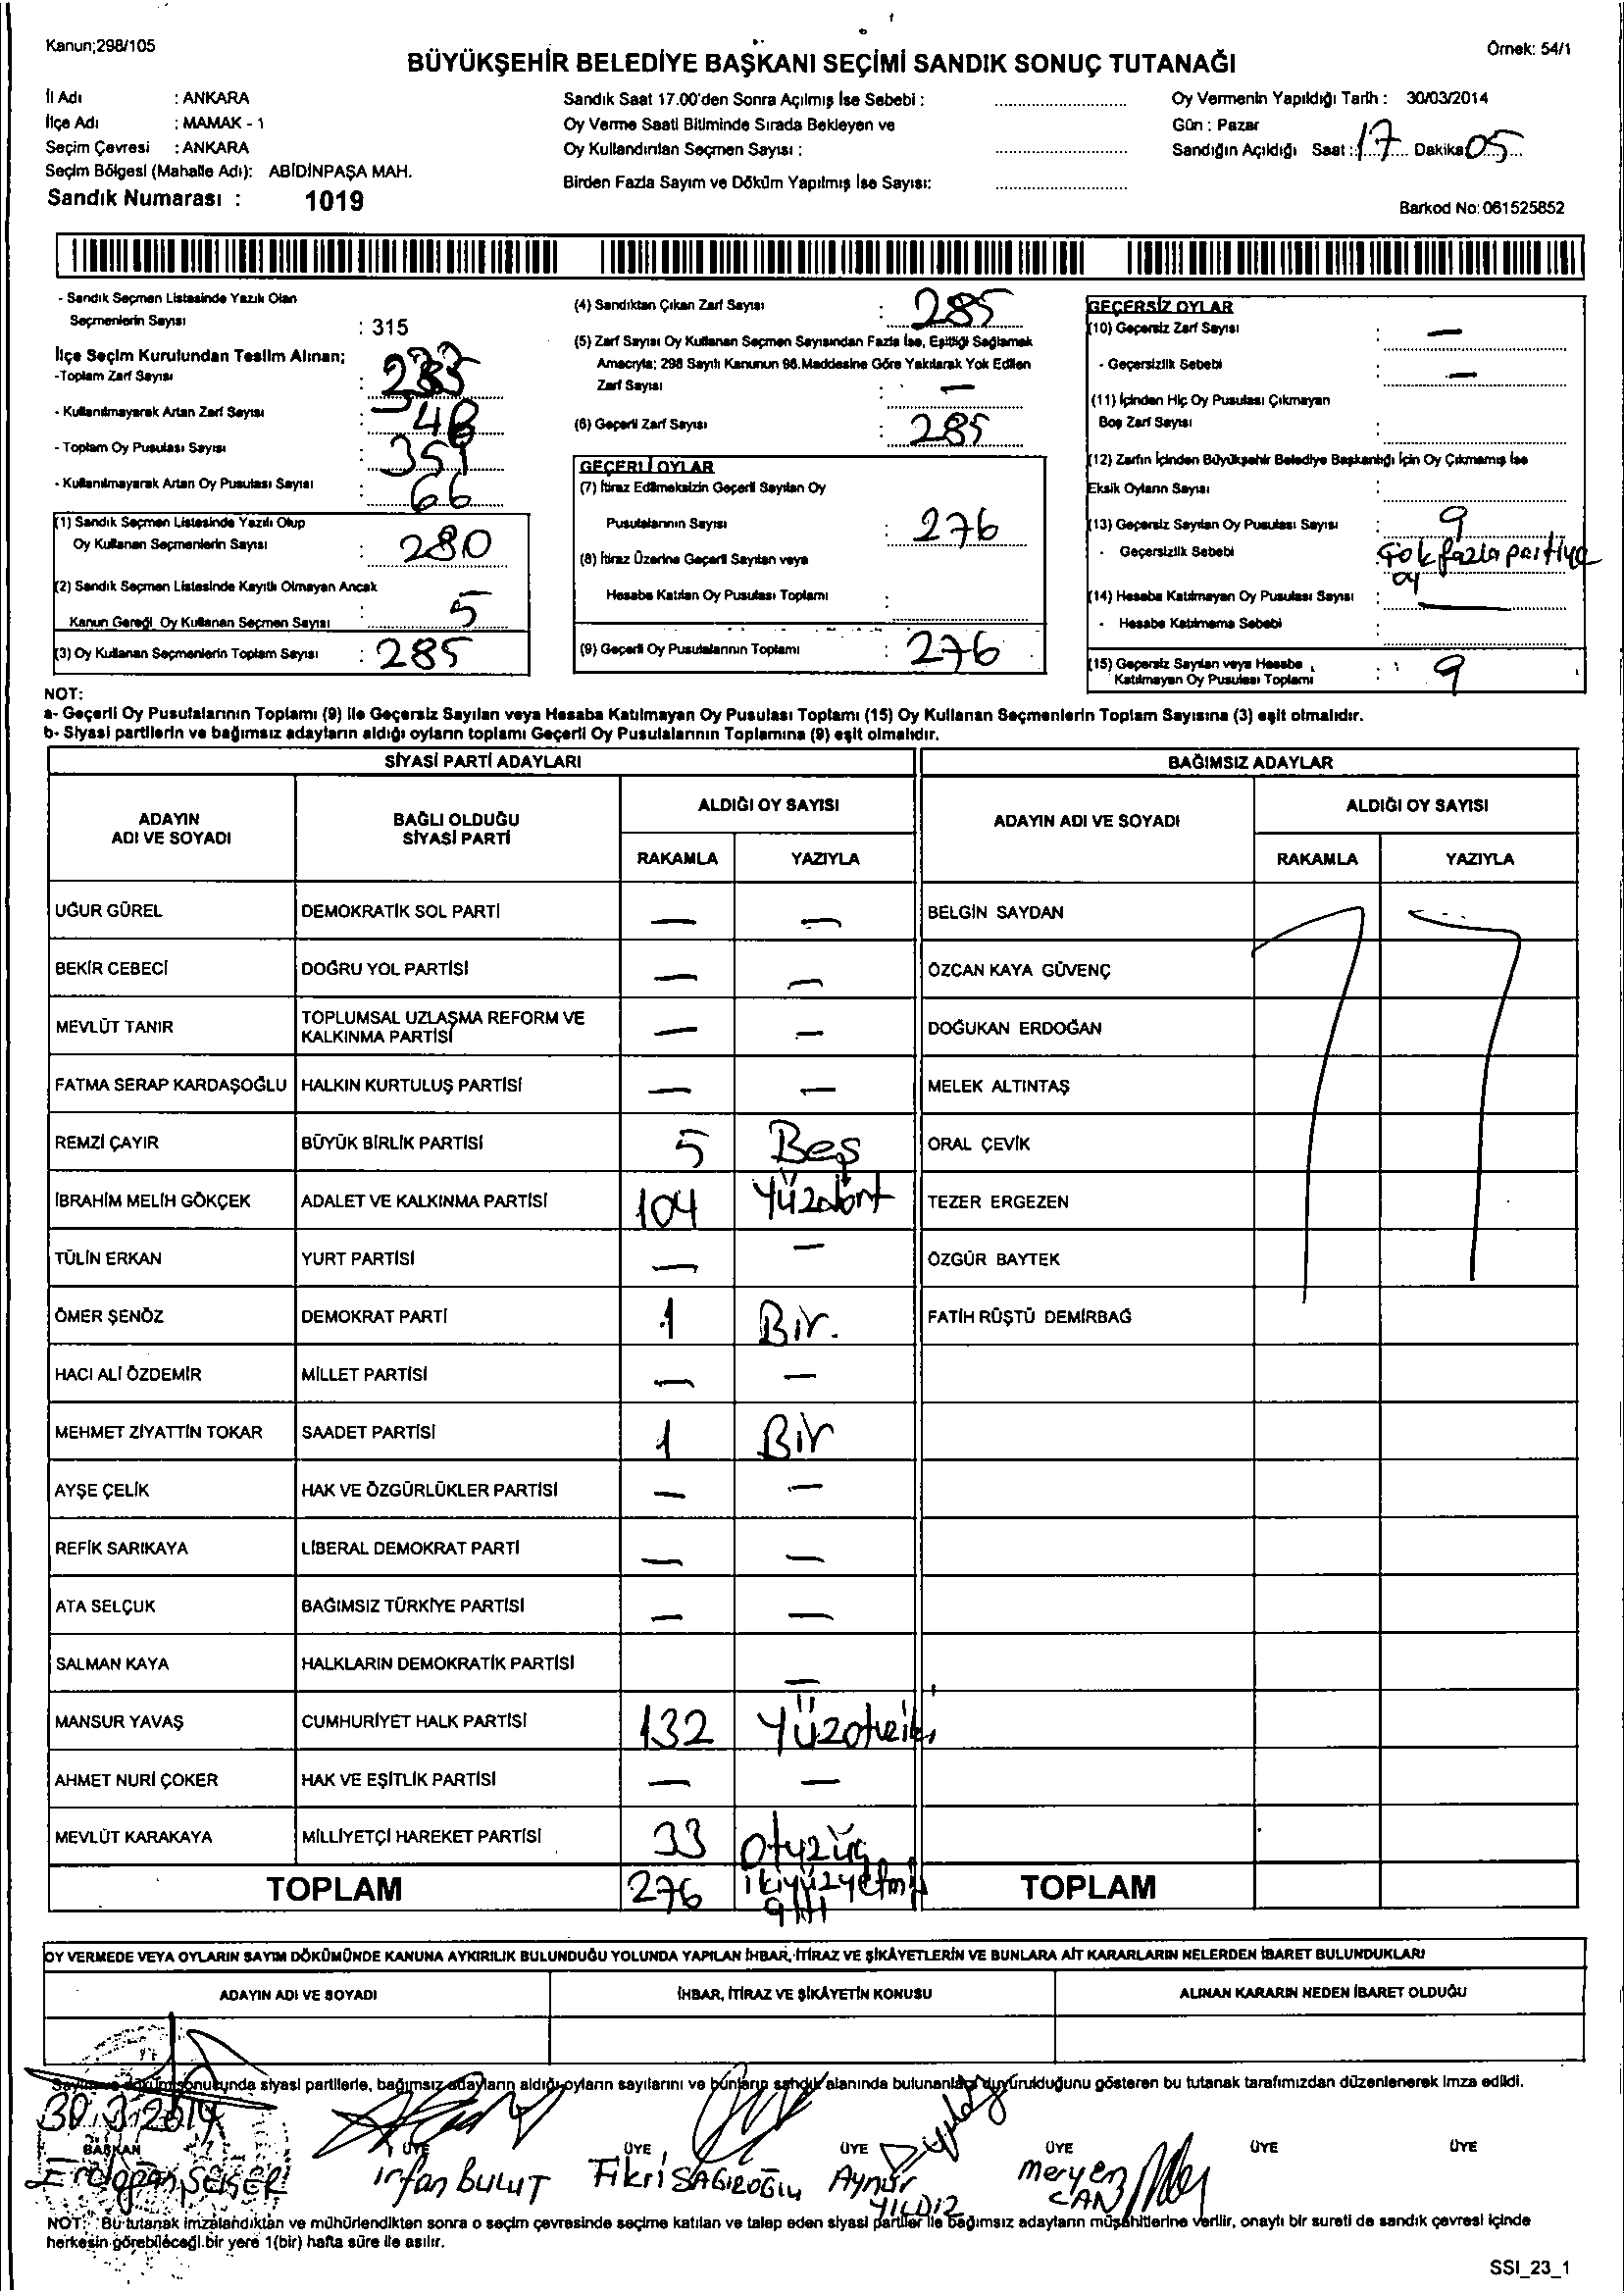 Kanun;298/105
Örnek: 54/1
BÜYÜKŞEHİR BELEDİYE BAŞKANI SEÇİMİ SANDIK SONUÇ TUTANAĞI
İl Adı : ANKARA
İlçe Adı : MAMAK - 1
Seçim Çevresi : ANKARA
Seçim Bölgesi (Mahalle Adı): ABİDİNPAŞA MAH.
Sandık Numarası : 1019
Sandık Saat 17.00'den Sonra Açılmış İse Sebebi :
Oy Verme Saati Bitiminde Sırada Bekleyen ve
Oy Kullandırılan Seçmen Sayısı :
Birden Fazla Sayım ve Döküm Yapılmış İse Sayısı:
Oy Vermenin Yapıldığı Tarih : 30/03/2014
Gün : Pazar
Sandığın Açıldığı Saat : 17 Dakika 05
Barkod No: 061525852
- Sandık Seçmen Listesinde Yazılı Olan
Seçmenlerin Sayısı : 315
İlçe Seçim Kurulundan Teslim Alınan;
-Toplam Zarf Sayısı :
- Kullanılmayarak Artan Zarf Sayısı :
- Toplam Oy Pusulası Sayısı : 351
- Kullanılmayarak Artan Oy Pusulası Sayısı : 66
(1) Sandık Seçmen Listesinde Yazılı Olup
Oy Kullanan Seçmenlerin Sayısı : 280
(2) Sandık Seçmen Listesinde Kayıtlı Olmayan Ancak
Kanun Gereği Oy Kullanan Seçmen Sayısı : 5
(3) Oy Kullanan Seçmenlerin Toplam Sayısı : 285
(4) Sandıktan Çıkan Zarf Sayısı : 285
(5) Zarf Sayısı Oy Kullanan Seçmen Sayısından Fazla İse, Eşitliği Sağlamak
Amacıyla; 298 Sayılı Kanunun 98.Maddesine Göre Yakılarak Yok Edilen
Zarf Sayısı : —
(6) Geçerli Zarf Sayısı : 285
GEÇERLİ OYLAR
(7) İtiraz Edilmeksizin Geçerli Sayılan Oy
Pusulalarının Sayısı : 276
(8) İtiraz Üzerine Geçerli Sayılan veya
Hesaba Katılan Oy Pusulası Toplamı :
(9) Geçerli Oy Pusulalarının Toplamı : 276
GEÇERSİZ OYLAR
(10) Geçersiz Zarf Sayısı : —
- Geçersizlik Sebebi : —
(11) İçinden Hiç Oy Pusulası Çıkmayan
Boş Zarf Sayısı :
(12) Zarfın İçinden Büyükşehir Belediye Başkanlığı İçin Oy Çıkmamış İse
Eksik Oyların Sayısı :
(13) Geçersiz Sayılan Oy Pusulası Sayısı : 9
- Geçersizlik Sebebi : Çok fazla partiye
oy
(14) Hesaba Katılmayan Oy Pusulası Sayısı : —
- Hesaba Katılmama Sebebi :
(15) Geçersiz Sayılan veya Hesaba
Katılmayan Oy Pusulası Toplamı : 9
NOT:
a- Geçerli Oy Pusulalarının Toplamı (9) ile Geçersiz Sayılan veya Hesaba Katılmayan Oy Pusulası Toplamı (15) Oy Kullanan Seçmenlerin Toplam Sayısına (3) eşit olmalıdır.
b- Siyasi partilerin ve bağımsız adayların aldığı oyların toplamı Geçerli Oy Pusulalarının Toplamına (9) eşit olmalıdır.
SİYASİ PARTİ ADAYLARI
BAĞIMSIZ ADAYLAR
ADAYIN ADI VE SOYADI
BAĞLI OLDUĞU SİYASİ PARTİ
ALDIĞI OY SAYISI
RAKAMLA YAZIYLA
ADAYIN ADI VE SOYADI
ALDIĞI OY SAYISI
RAKAMLA YAZIYLA
UĞUR GÜREL DEMOKRATİK SOL PARTİ — — BELGİN SAYDAN
BEKİR CEBECİ DOĞRU YOL PARTİSİ — — ÖZCAN KAYA GÜVENÇ
MEVLÜT TANIR TOPLUMSAL UZLAŞMA REFORM VE KALKINMA PARTİSİ — — DOĞUKAN ERDOĞAN
FATMA SERAP KARDAŞOĞLU HALKIN KURTULUŞ PARTİSİ — — MELEK ALTINTAŞ
REMZİ ÇAYIR BÜYÜK BİRLİK PARTİSİ 5 Beş ORAL ÇEVİK
İBRAHİM MELİH GÖKÇEK ADALET VE KALKINMA PARTİSİ 104 Yüzdört TEZER ERGEZEN
TÜLİN ERKAN YURT PARTİSİ — — ÖZGÜR BAYTEK
ÖMER ŞENÖZ DEMOKRAT PARTİ 1 Bir. FATİH RÜŞTÜ DEMİRBAĞ
HACI ALİ ÖZDEMİR MİLLET PARTİSİ — —
MEHMET ZİYATTİN TOKAR SAADET PARTİSİ 1 Bir
AYŞE ÇELİK HAK VE ÖZGÜRLÜKLER PARTİSİ — —
REFİK SARIKAYA LİBERAL DEMOKRAT PARTİ — —
ATA SELÇUK BAĞIMSIZ TÜRKİYE PARTİSİ — —
SALMAN KAYA HALKLARIN DEMOKRATİK PARTİSİ —
MANSUR YAVAŞ CUMHURİYET HALK PARTİSİ 132
AHMET NURİ ÇOKER HAK VE EŞİTLİK PARTİSİ — —
MEVLÜT KARAKAYA MİLLİYETÇİ HAREKET PARTİSİ 33 Otuzüç
TOPLAM 276 ikiyüzyetmiş altı TOPLAM
OY VERMEDE VEYA OYLARIN SAYIM DÖKÜMÜNDE KANUNA AYKIRILIK BULUNDUĞU YOLUNDA YAPILAN İHBAR, İTİRAZ VE ŞİKÂYETLERİN VE BUNLARA AİT KARARLARIN NELERDEN İBARET BULUNDUKLARI
ADAYIN ADI VE SOYADI İHBAR, İTİRAZ VE ŞİKÂYETİN KONUSU ALINAN KARARIN NEDEN İBARET OLDUĞU
Sayım ve döküm sonucunda siyasi partilerle, bağımsız adayların aldığı oyların sayılarını ve bunların sandık alanında bulunanlara duyurulduğunu gösteren bu tutanak tarafımızdan düzenlenerek imza edildi.
30.3.2014
BAŞKAN ÜYE ÜYE ÜYE ÜYE ÜYE ÜYE
Erdoğan ŞEKER İrfan BULUT Fikri SAĞIROĞLU Aynur YILDIZ Meryem CAN
NOT: Bu tutanak imzalandıktan ve mühürlendikten sonra o seçim çevresinde seçime katılan ve talep eden siyasi partiler ile bağımsız adayların müşahitlerine verilir, onaylı bir sureti de sandık çevresi içinde
herkesin görebileceği bir yere 1(bir) hafta süre ile asılır.
SSI_23_1